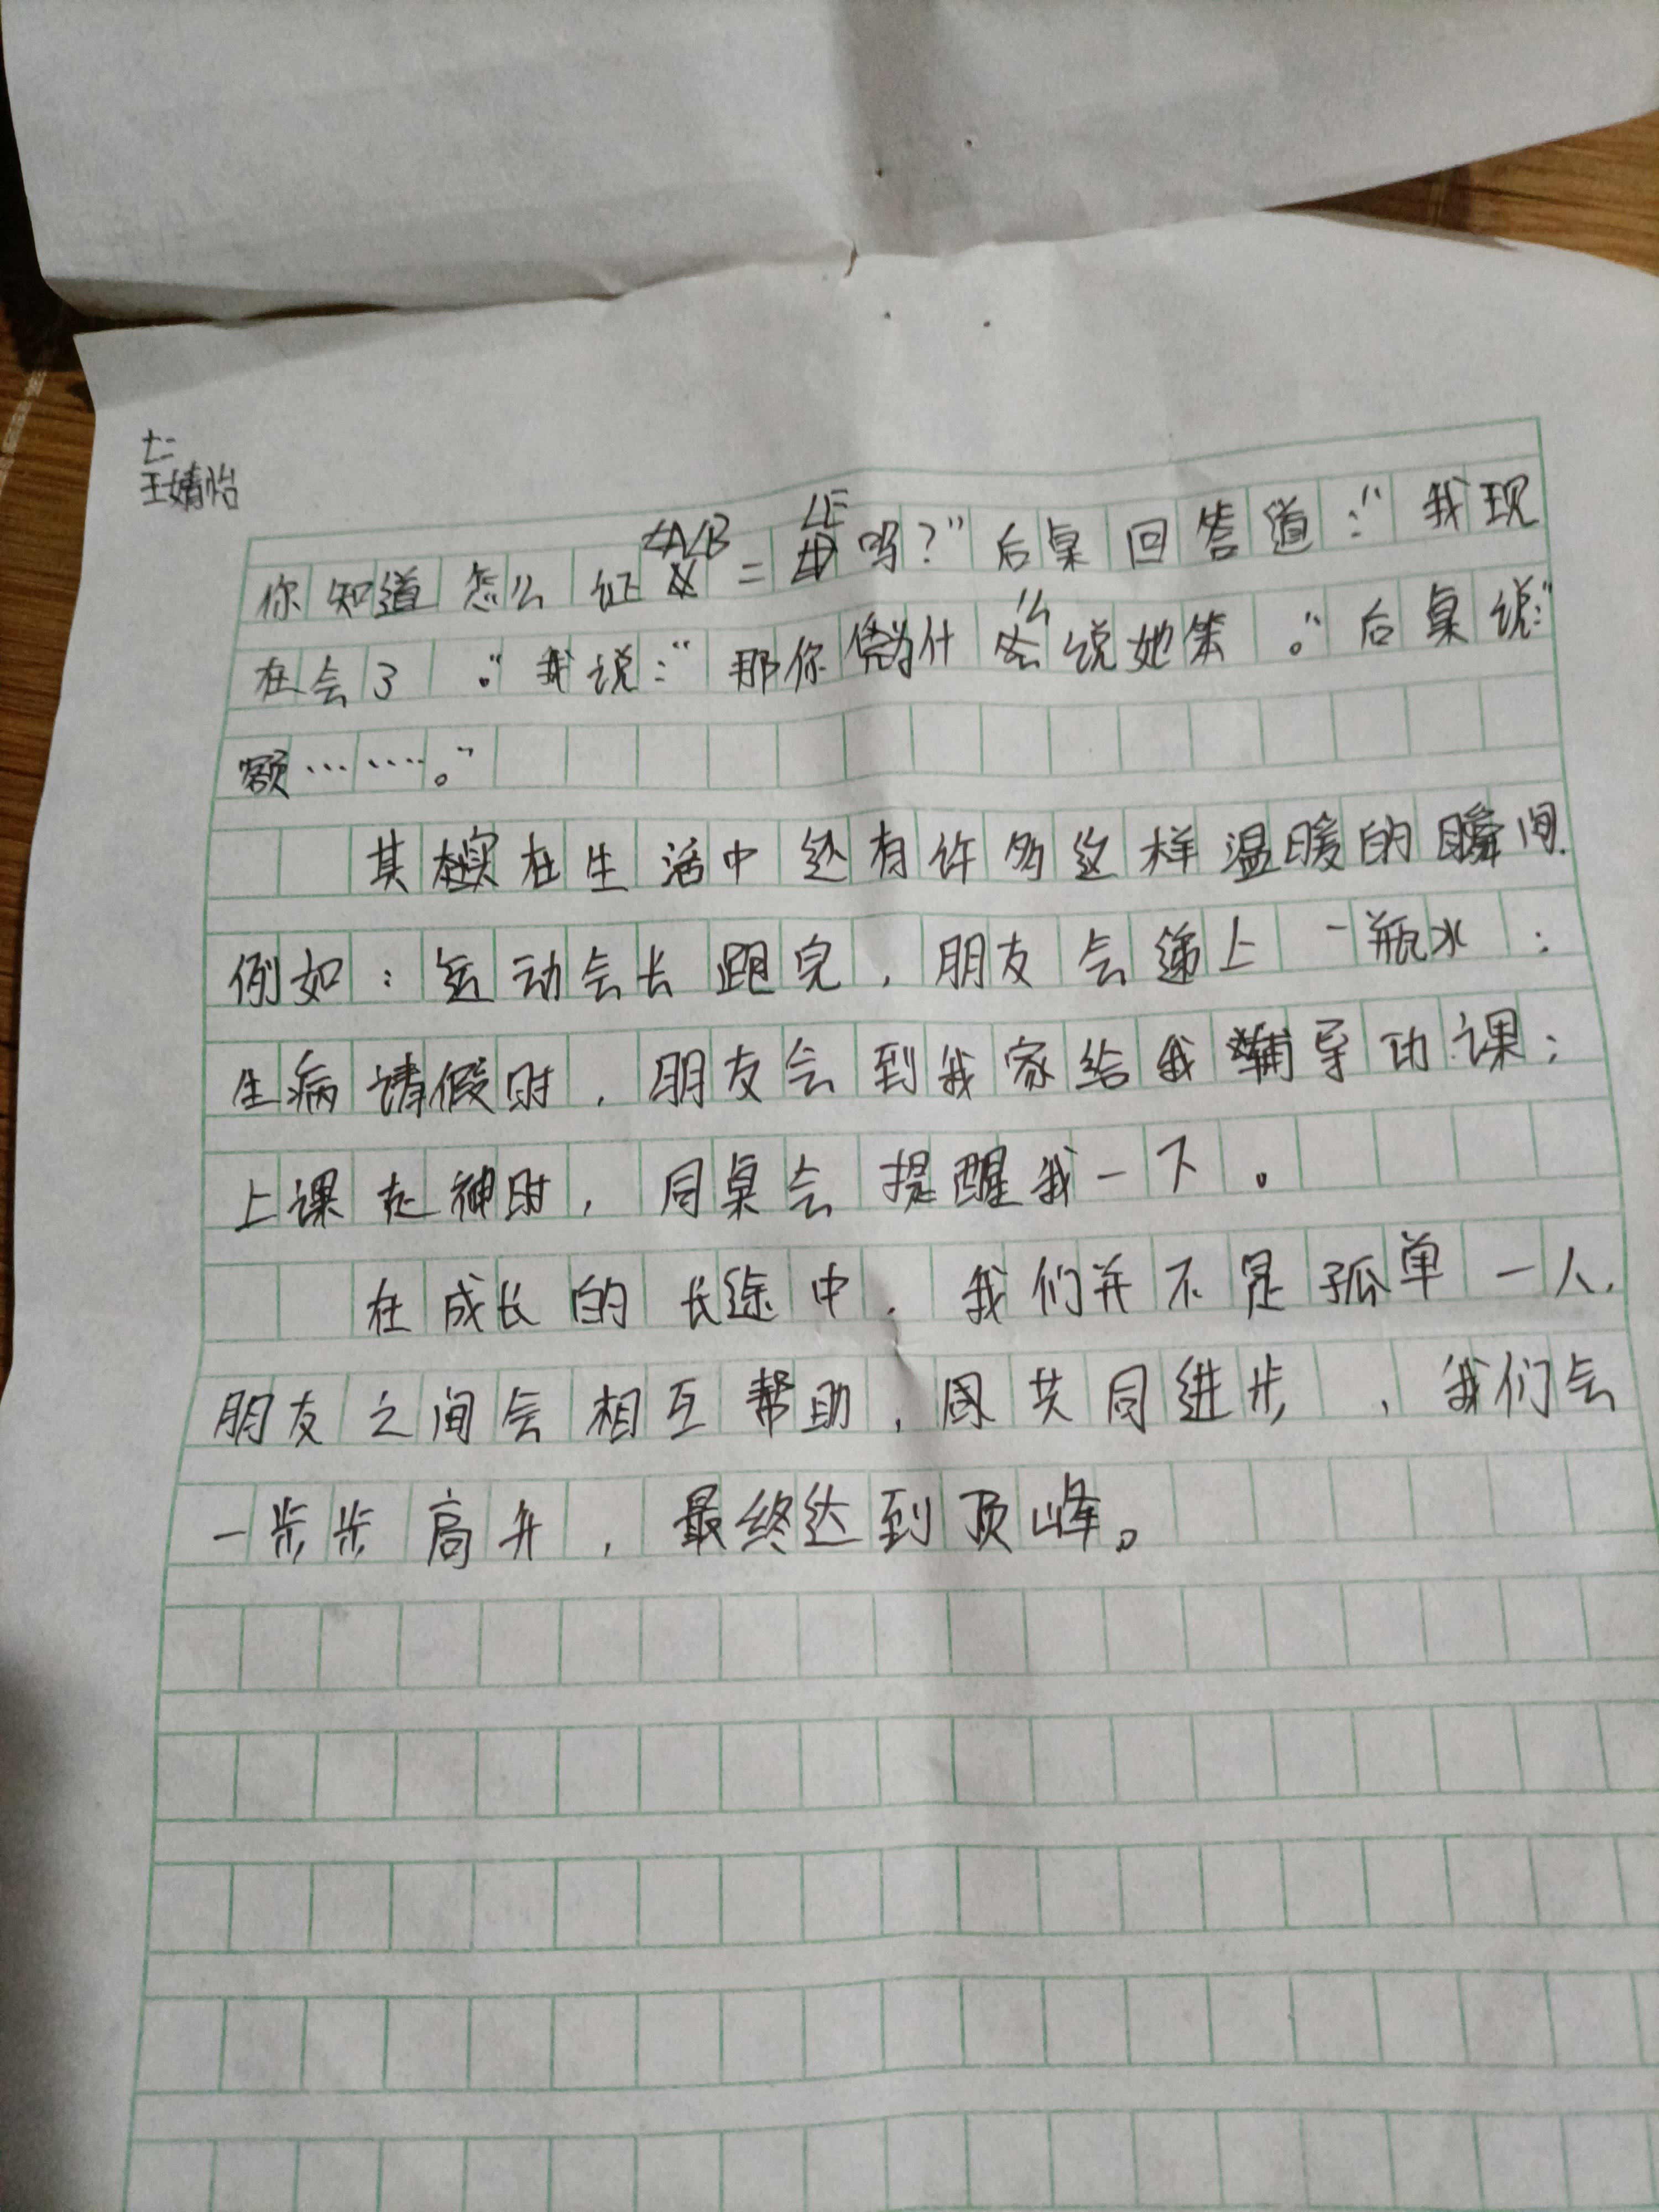 七二
王婧怡
你知道怎么证∠A∠B=∠E吗？”后桌回答道：“我现
在会了。”我说：“那你为什么说她笨。”后桌说：“
额……。”
其实在生活中还有许多这样温暖的瞬间.
例如：运动会长跑完，朋友会递上一瓶水；
生病请假时，朋友会到我家给我辅导功课；
上课走神时，同桌会提醒我一下。
在成长的长途中，我们并不是孤单一人.
朋友之间会相互帮助，共同进步，我们会
一步步高升，最终达到顶峰。